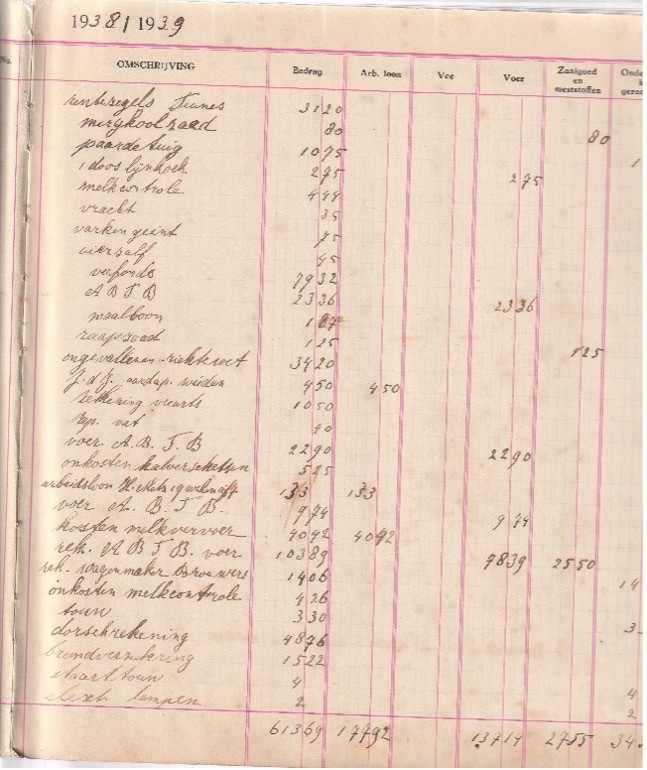 1938/1939
No. OMSCHRIJVING Bedrag Arb. loon Vee Voer Zaaigoed en meststoffen Onde
rentezegels Teunes 31 20
mergkoolzaad 80 80
paardetuig 10 75 1
1 doos lijnkoek 2 75 2 75
melkcontrole 4 44
vracht 35
varken geënt 75
uierzalf 45
veefonds 79 32
A B T B 23 36 23 36
maalboon 1
raapzaad 1 25 1 25
ongevallen-ziektewet 34 20
J. d J. aardap. wieden 4 50 4 50
rekening veearts 10 50
rep. vat
voer A. B. T. B 22 90 22 90
onkosten kalverschetsen 5 25
arbeidsloon H. 133 133
voer A. B. T. B. 9 74 9 74
kosten melkvervoer 40 42 40 42
rek. A B T B. voer 103 89 78 39 25 50
rek. wagenmaker Brouwers 14 06 14
onkosten melkcontrole 4 26
touw 3 30 3
dorschrekening 48 76
brandverzekering 15 22
staarttouw 4 4
electr lampen 2 2
613 69 177 92 137 14 27 55 34